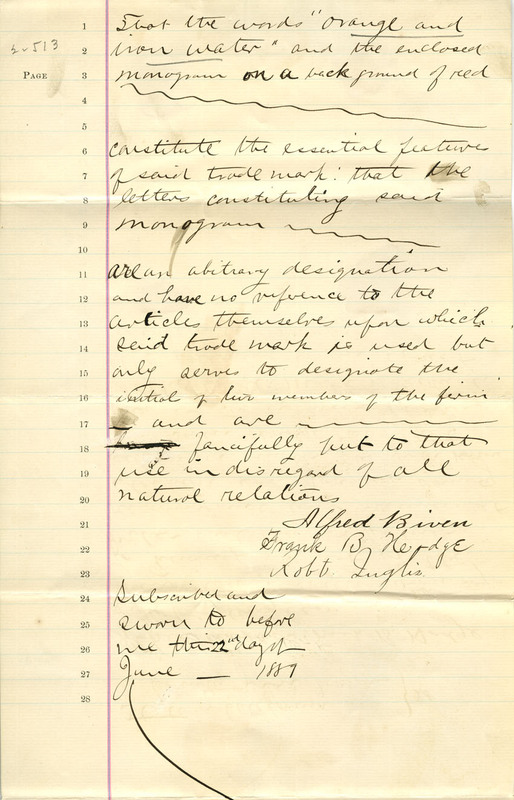 2513
PAGE
1 That the words "Orange and
2 iron water" and the enclosed
3 monogram on a back ground of red
4
5
6 constitute the essential features
7 of said trade mark: that the
8 letters constituting said
9 monogram
10
11 are an abitrary designation
12 and have no refernce to the
13 articles themselves upon which
14 said trade mark is used but
15 only serves to designate the
16 initial of two members of the firm
17 and are
18 fancifully put to that
19 use in disregard of all
20 natural relations
21 Alfred Biven
22 Frank B. Hedge
23 Robt. Inglis
24 Subscribed and
25 sworn to before
26 me this 22nd day of
27 June — 1889
28